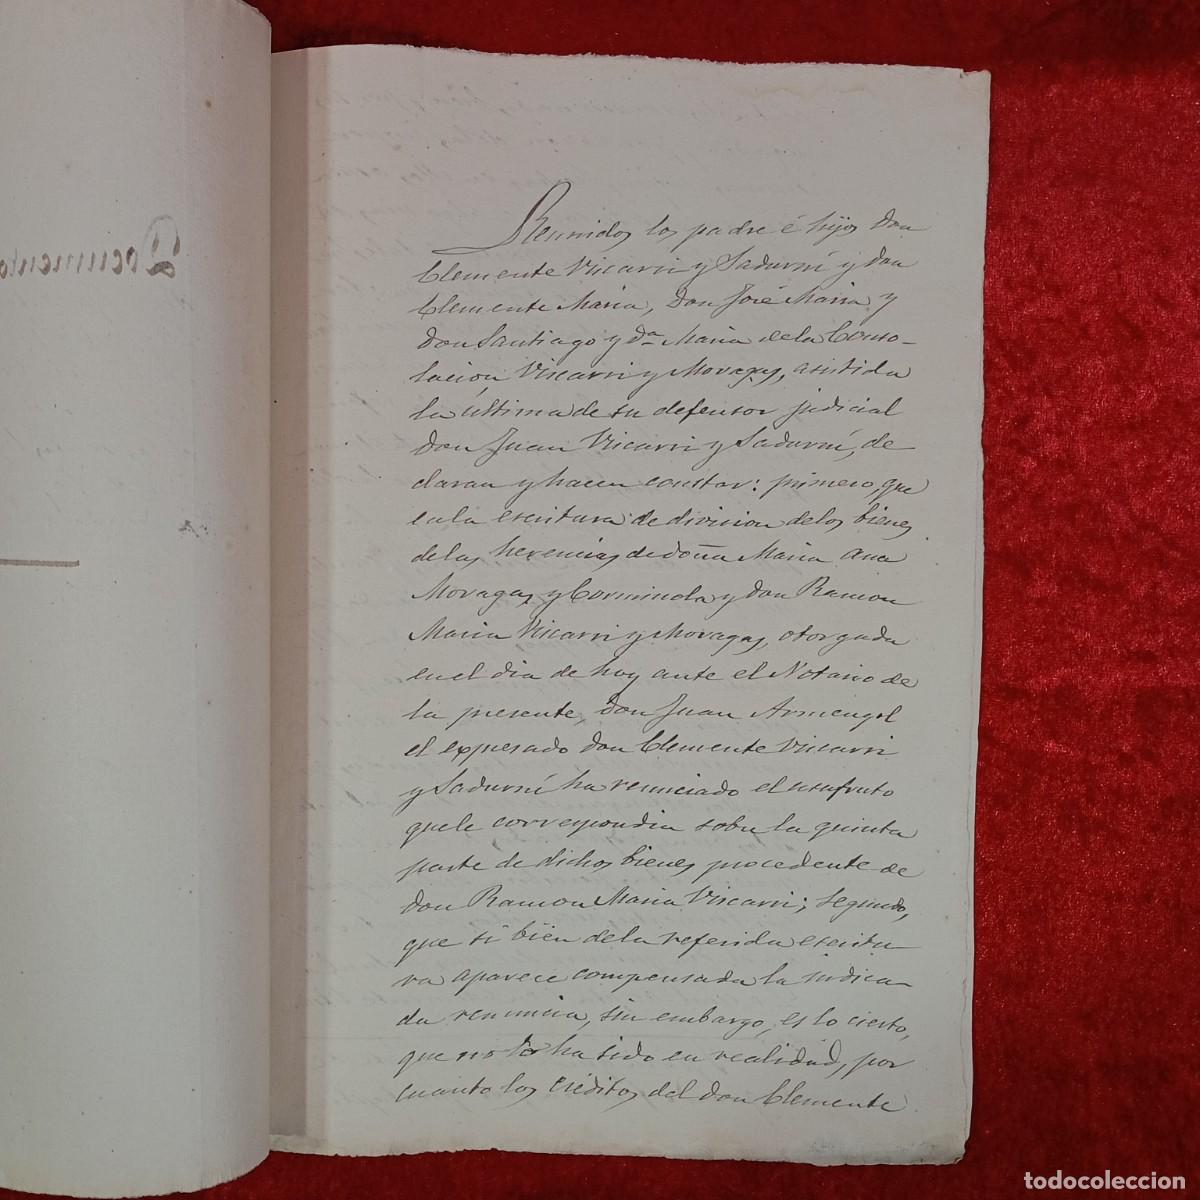 Documento
Reunidos los padre é hijos don
Clemente Viscarri y Sadurní y don
Clemente Maria, don José Maria y
don Santiago y dª Maria de la Conso-
lacion Viscarri y Moragas, asistida
la última de su defensor judicial
don Juan Viscarri y Sadurní, de
claran y hacen constar: primero, que
en la escritura de division de los bienes
de las herencias de doña Maria Ana
Moragas y Corminola y don Ramon
Maria Viscarri y Moragas, otorgada
en el dia de hoy ante el Notario de
la presente, don Juan Armengol
el expresado don Clemente Viscarri
y Sadurní ha renunciado el usufruto
que le correspondia sobre la quinta
parte de dichos bienes procedente de
don Ramon Maria Viscarri; segundo,
que si bien de la referida escritu-
ra aparece compensada la indica-
da renuncia, sin embargo, es lo cierto,
que no lo ha sido en realidad, por
cuanto los créditos del don Clemente
todocoleccion